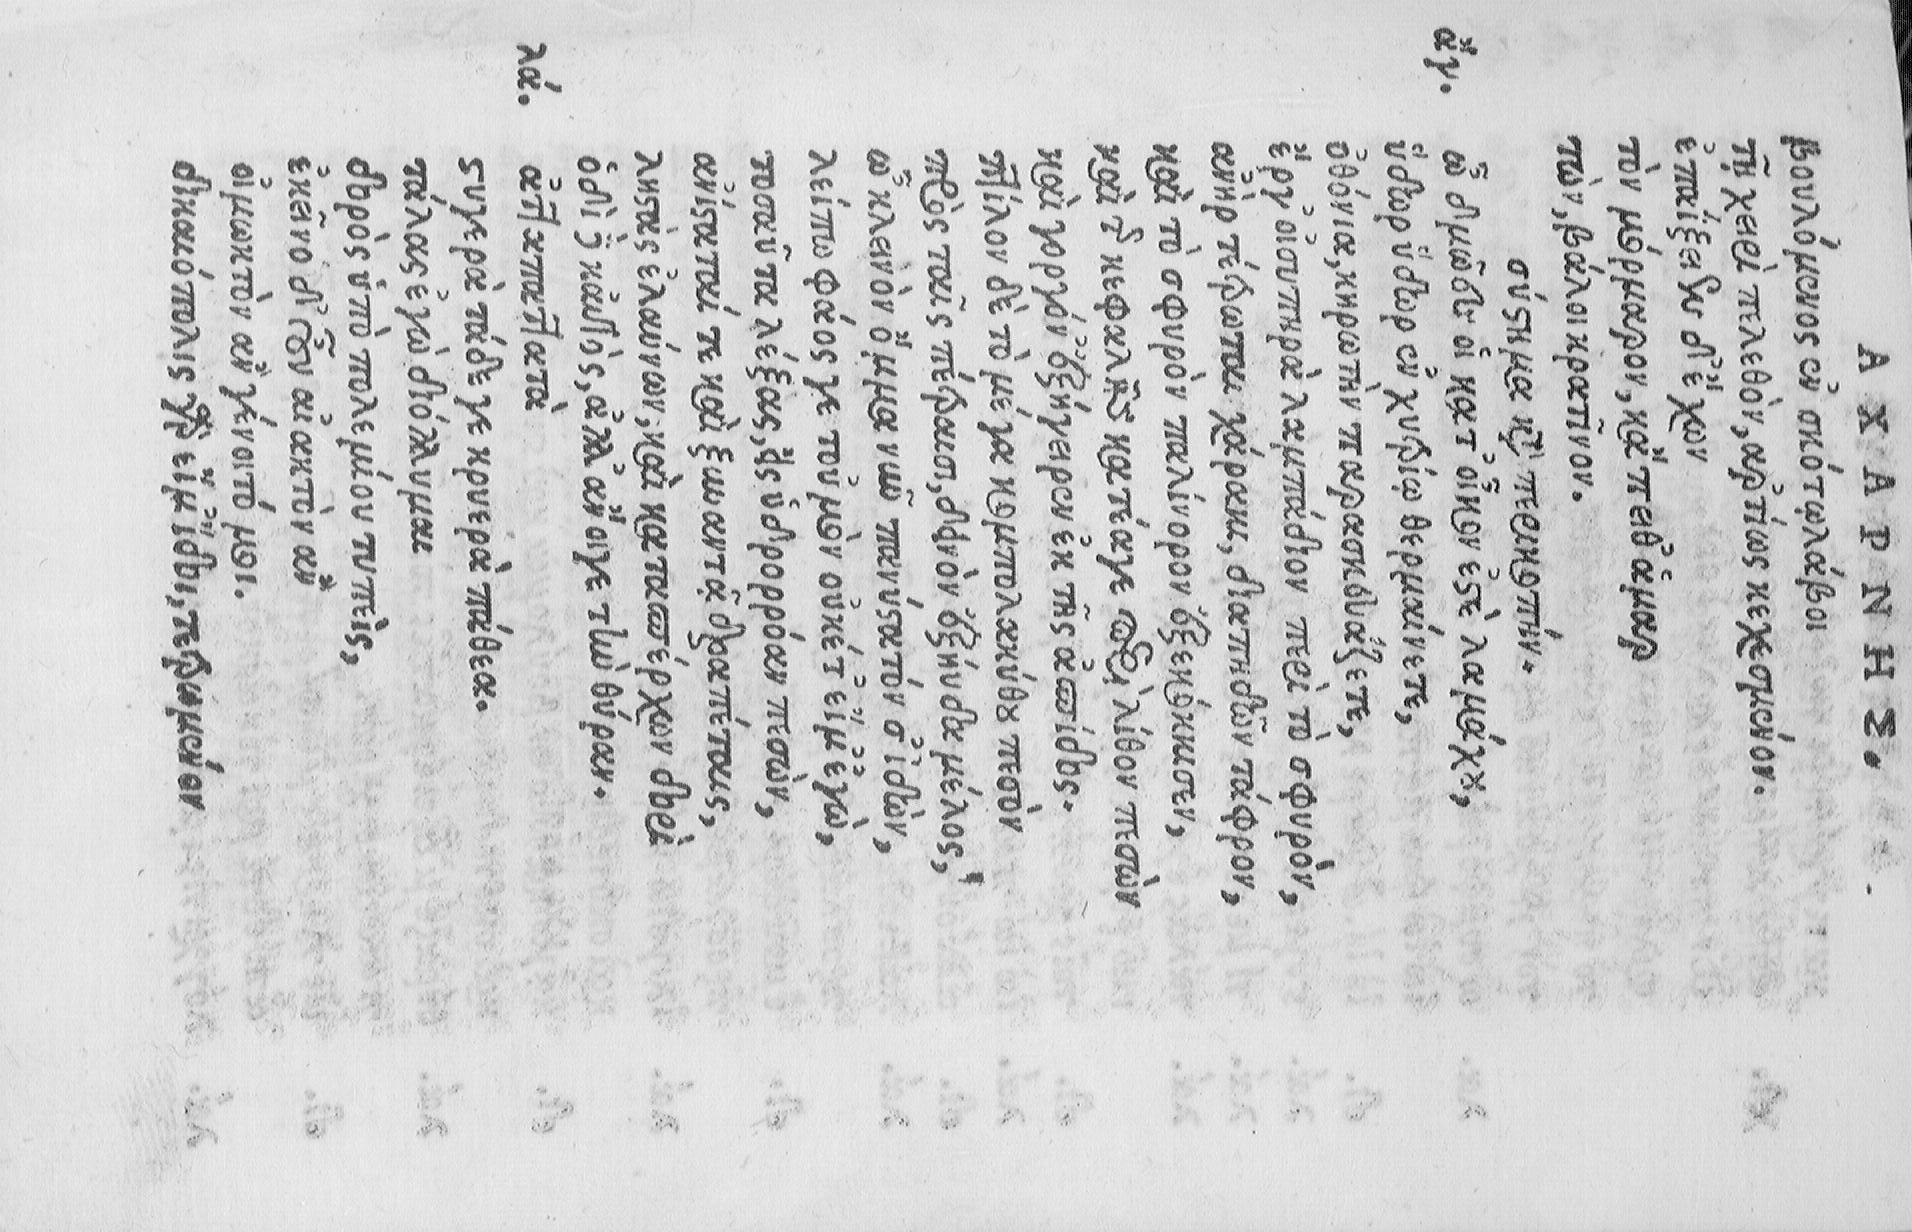 ΑΧΑΡΝΗΣ.
βουλόμενος ἐν σκότῳ λάβοι
τῇ χειρὶ πέλεθον, ἀρτίως κεχεσμένον.
ἐπαΐξειεν δ' ἔχων
τὸν μάρμαρον, κἄπειθ' ἁμαρ
τὼν, βάλοι κρατῖνον.
σύστημα κτ̃ περικοπήν.
ἄγ. ὦ δμῶες οἳ κατ' οἶκον ἐστὲ λαμάχου,
ὕδωρ ὕδωρ ἐν χυτρίῳ θερμαίνετε,
ὀθόνια, κηρωτὴν παρασκευάζετε,
ἔρι' οἰσυπηρὰ λαμπάδιον περὶ τὸ σφυρόν,
ἀνὴρ τέτρωται χάρακι, διαπηδῶν τάφρον,
καὶ τὸ σφυρὸν παλίνορρον ἐξεκόκκισεν,
καὶ τ̃ κεφαλῆς κατέαγε περὶ λίθον πεσὼν
καὶ γοργόν' ἐξήγειρεν ἐκ τῆς ἀσπίδος.
πτίλον δὲ τὸ μέγα κομπολακύθου πεσὸν
πρὸς ταῖς πέτραισι, δεινὸν ἐξηύδα μέλος,
ὦ κλεινὸν ὄμμα νῦν πανύστατόν σ' ἰδὼν,
λείπω φάος γε τοὐμὸν οὐκέτ' εἴμ' ἐγὼ,
τοσαῦτα λέξας, εἰς ὑδρορρόαν πεσὼν,
ἀνίσταταί τε καὶ ξυναντᾷ δραπέταις,
λῃστὰς ἐλαύνων, καὶ κατασπέρχων δορὶ
ὁδὶ δὲ καὐτὸς, ἀλλ' ἄνοιγε τὴν θύραν.
λά. ἀτταπατταῖατὰ
στυγερὰ τάδε γε κρυερὰ πάθεα.
τάλας ἐγὼ διόλλυμαι
δορὸς ὑπὸ πολεμίου τυπεὶς,
ἐκεῖνο δ' οὖν αἰακτὸν ἂν
οἰμωκτὸν ἂν γένοιτό μοι.
δικαιόπολις γὰρ εἴ μ' ἴδοι, τετρωμένον